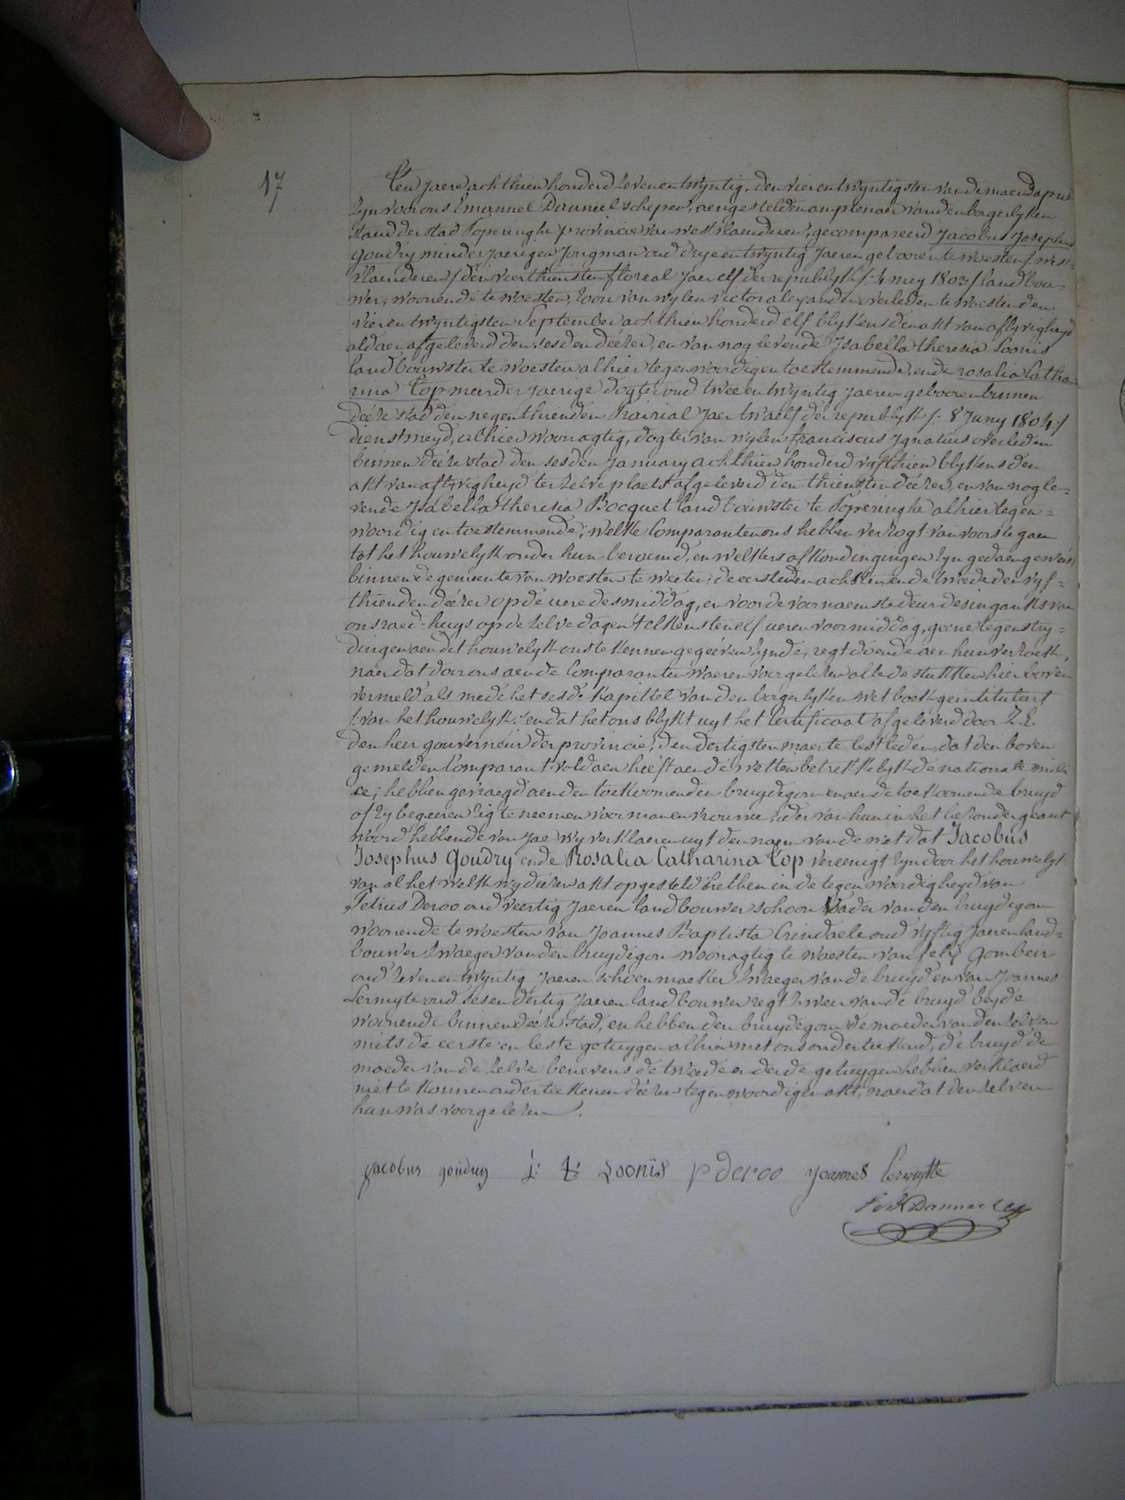 17
Ten jaere achthien honderd zeven en twyntig, den vier en twyntigsten van de maend april
zyn voor ons Emannel Danneel schepen, aengestelden amptenaer van den borgerlyken
stand der stad Poperinghe provincie van westvlaenderen, gecompareerd Jacobus Josephus
Goudry minderjaerigen jongman oud drye en twyntig jaeren geboren te woesten (west-
vlaenderen) den veerthiensten floreal jaer elf der republyk /: 4 mey 1803 :/ landbou-
wer, woonende te woesten, zoon van wylen victor alexander overleden te woesten den
vier en twyntigsten september achthien honderd elf blykens den akt van aflyvigheyd
aldaer afgeleverd den sesden deézer, en van nog levende Isabella theresia Loonis
landbouwster te woesten alhier tegenwoordig en toestemmende, ende rosalia Catha-
rina Top meerderjaerige dogter oud twee en twyntig jaeren geboren binnen
deéze stad den negenthienden Prairial jaer twaelf der republyk /: 8 Juny 1804 :/
dienstmeyd, alhier woonagtig, dogter van wylen franciscus Ignatius overleden
binnen deéze stad den sesden January achthien honderd vyfthien blykens den
akt van aflyvigheyd ter zelve plaets afgeleverd den thiensten deézer, en van nog le-
vende Isabella theresia Bocquet landbouwster te Poperinghe alhier tegen-
woordig en toestemmende; welke Comparanten ons hebben verzogt van voorts te gaen
tot het houwelyk onder hun beraemd, en welkers afkondingingen zyn gedaen geweést
binnen de gemeente van woesten te weeten: de eerste den achtsten en de tweede den vyf-
thienden deézer op dé uere des middag, en voor de voornaemste deur des ingangs van
ons raed-huys op de zelve dagen t'elkens ten elf ueren voormiddag, geene tegenstry-
dingen aen dit houwelyk ons te kennen gegeéven zynde, regt doende aen hun verzoek,
naer dat door ons aen de Comparanten waeren voorgelezen alle de stukken hier boven
vermeld als mede het sesde kapittel van den borgerlyken wetboek geintituleert
(van het houwelyk) en dat het ons blykt uyt het Certificaat afgeleverd door Z.E.
den heer gouverneur der provincie, den dertigsten maerte lestleden, dat den boven
gemelden Comparant voldaen heeft aen dé wetten betrekkelyk dé nationale mili-
cie; hebben gevraegd aen den toekoomenden bruydegom en aen de toekoomende bruyd
of zy begeeren zig te neemen voor man en vrouwe, ieder van hun en het bezonder geant-
woord hebbende van Jae, wy verklaeren uyt den naem van de wet dat Jacobus
Josephus Goudry ende Rosalia Catharina Top vereenigt zyn door het houwelyk
van al het welk wy deézen akt opgesteld hebben in de tegenwoordigheyd van
Petrus Deroo oud veertig jaeren landbouwer schoon Vader van den bruydegom
woonende te woesten van Joannes Baptista Crindaele oud vyftig jaeren land-
bouwer zwaeger van den bruydegom woonagtig te woesten van felix Gombeir
oud zeven en twyntig jaeren schoenmaeker zwaeger van de bruyd en van Joannes
Lermyte oud ses en dertig jaeren landbouwer regtzweer van de bruyd beyde
woonende binnen deéze stad, en hebben den bruydegom dé moeder van den zelven
mits dé eerste en leste getuygen alhier met ons ondertekend, dé bruyd dé
moeder van de zelve benevens dé tweede en derde getuygen hebben verklaerd
niet te konnen onderteekenen deézen tegenwoordigen akt, naer dat den zelven
hun was voorgelezen.
jacobus goudry I: t: Loonis p deroo joannes lermytte
Danneel